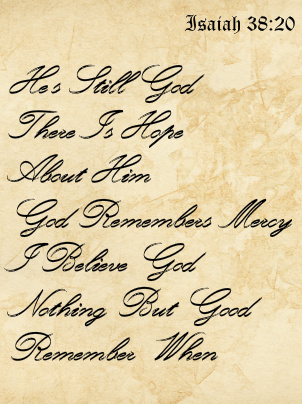 Isaiah 38:20
He's Still God
There Is Hope
About Him
God Remembers Mercy
I Believe God
Nothing But Good
Remember When